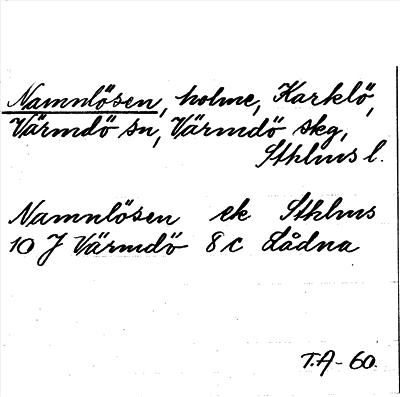 Namnlösen, holme, Karklö,
Värmdö sn, Värmdö skg,
Sthlms l.
Namnlösen ek Sthlms
10 J Värmdö 8 c Lådna
T.A-60.